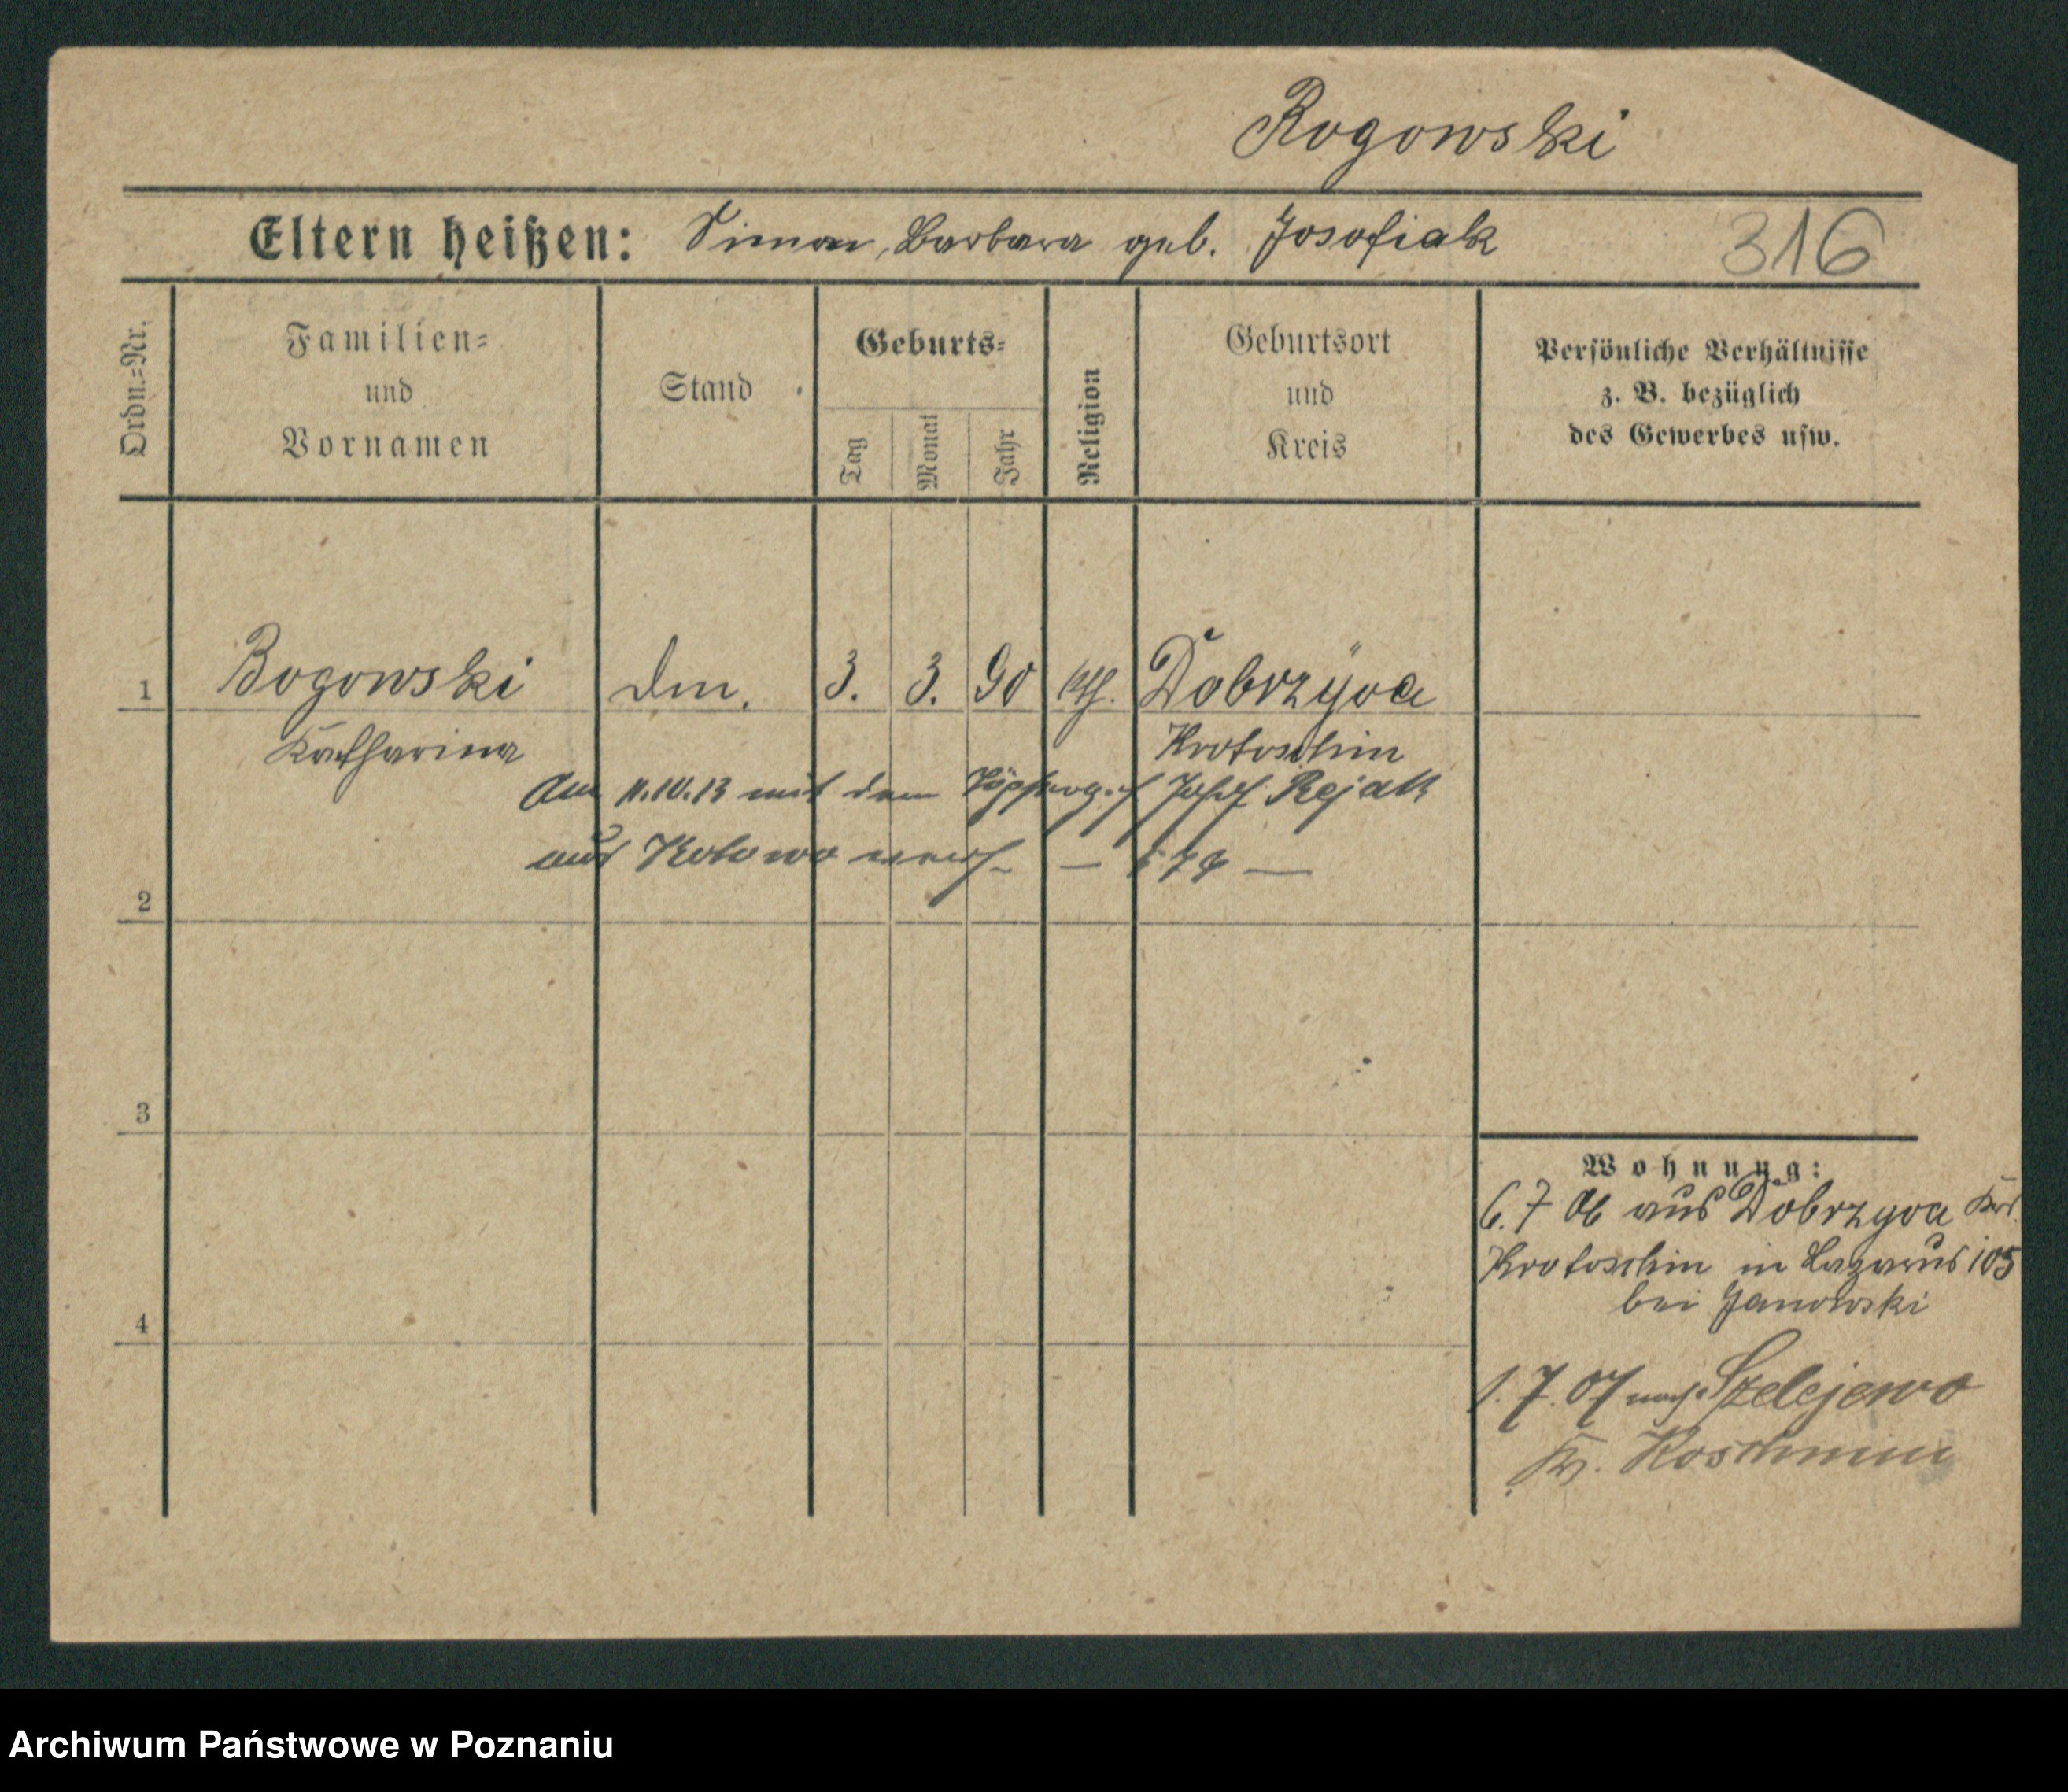 Rogowski
Eltern heißen: Simon, Barbara geb. Josefiak 316
Ordn.-Nr.
Familien-
und
Vornamen
Stand
Geburts-
Tag
Monat
Jahr
Religion
Geburtsort
und
Kreis
Persönliche Verhältnisse
z. B. bezüglich
des Gewerbes usw.
1 Rogowski Dm. 3. 3. 90 kth. Dobrzyca
Katharina Krotoschin
Am 11.10.13 mit dem Josef Rejak
aus Kotowo verh.
2
3
4
Wohnung:
6. 7 06 aus Dobrzyca Krs.
Krotoschin in Lazarus 105
bei Janowski
1. 7. 07 nach Szelejewo
Kr. Koschmin
Archiwum Państwowe w Poznaniu